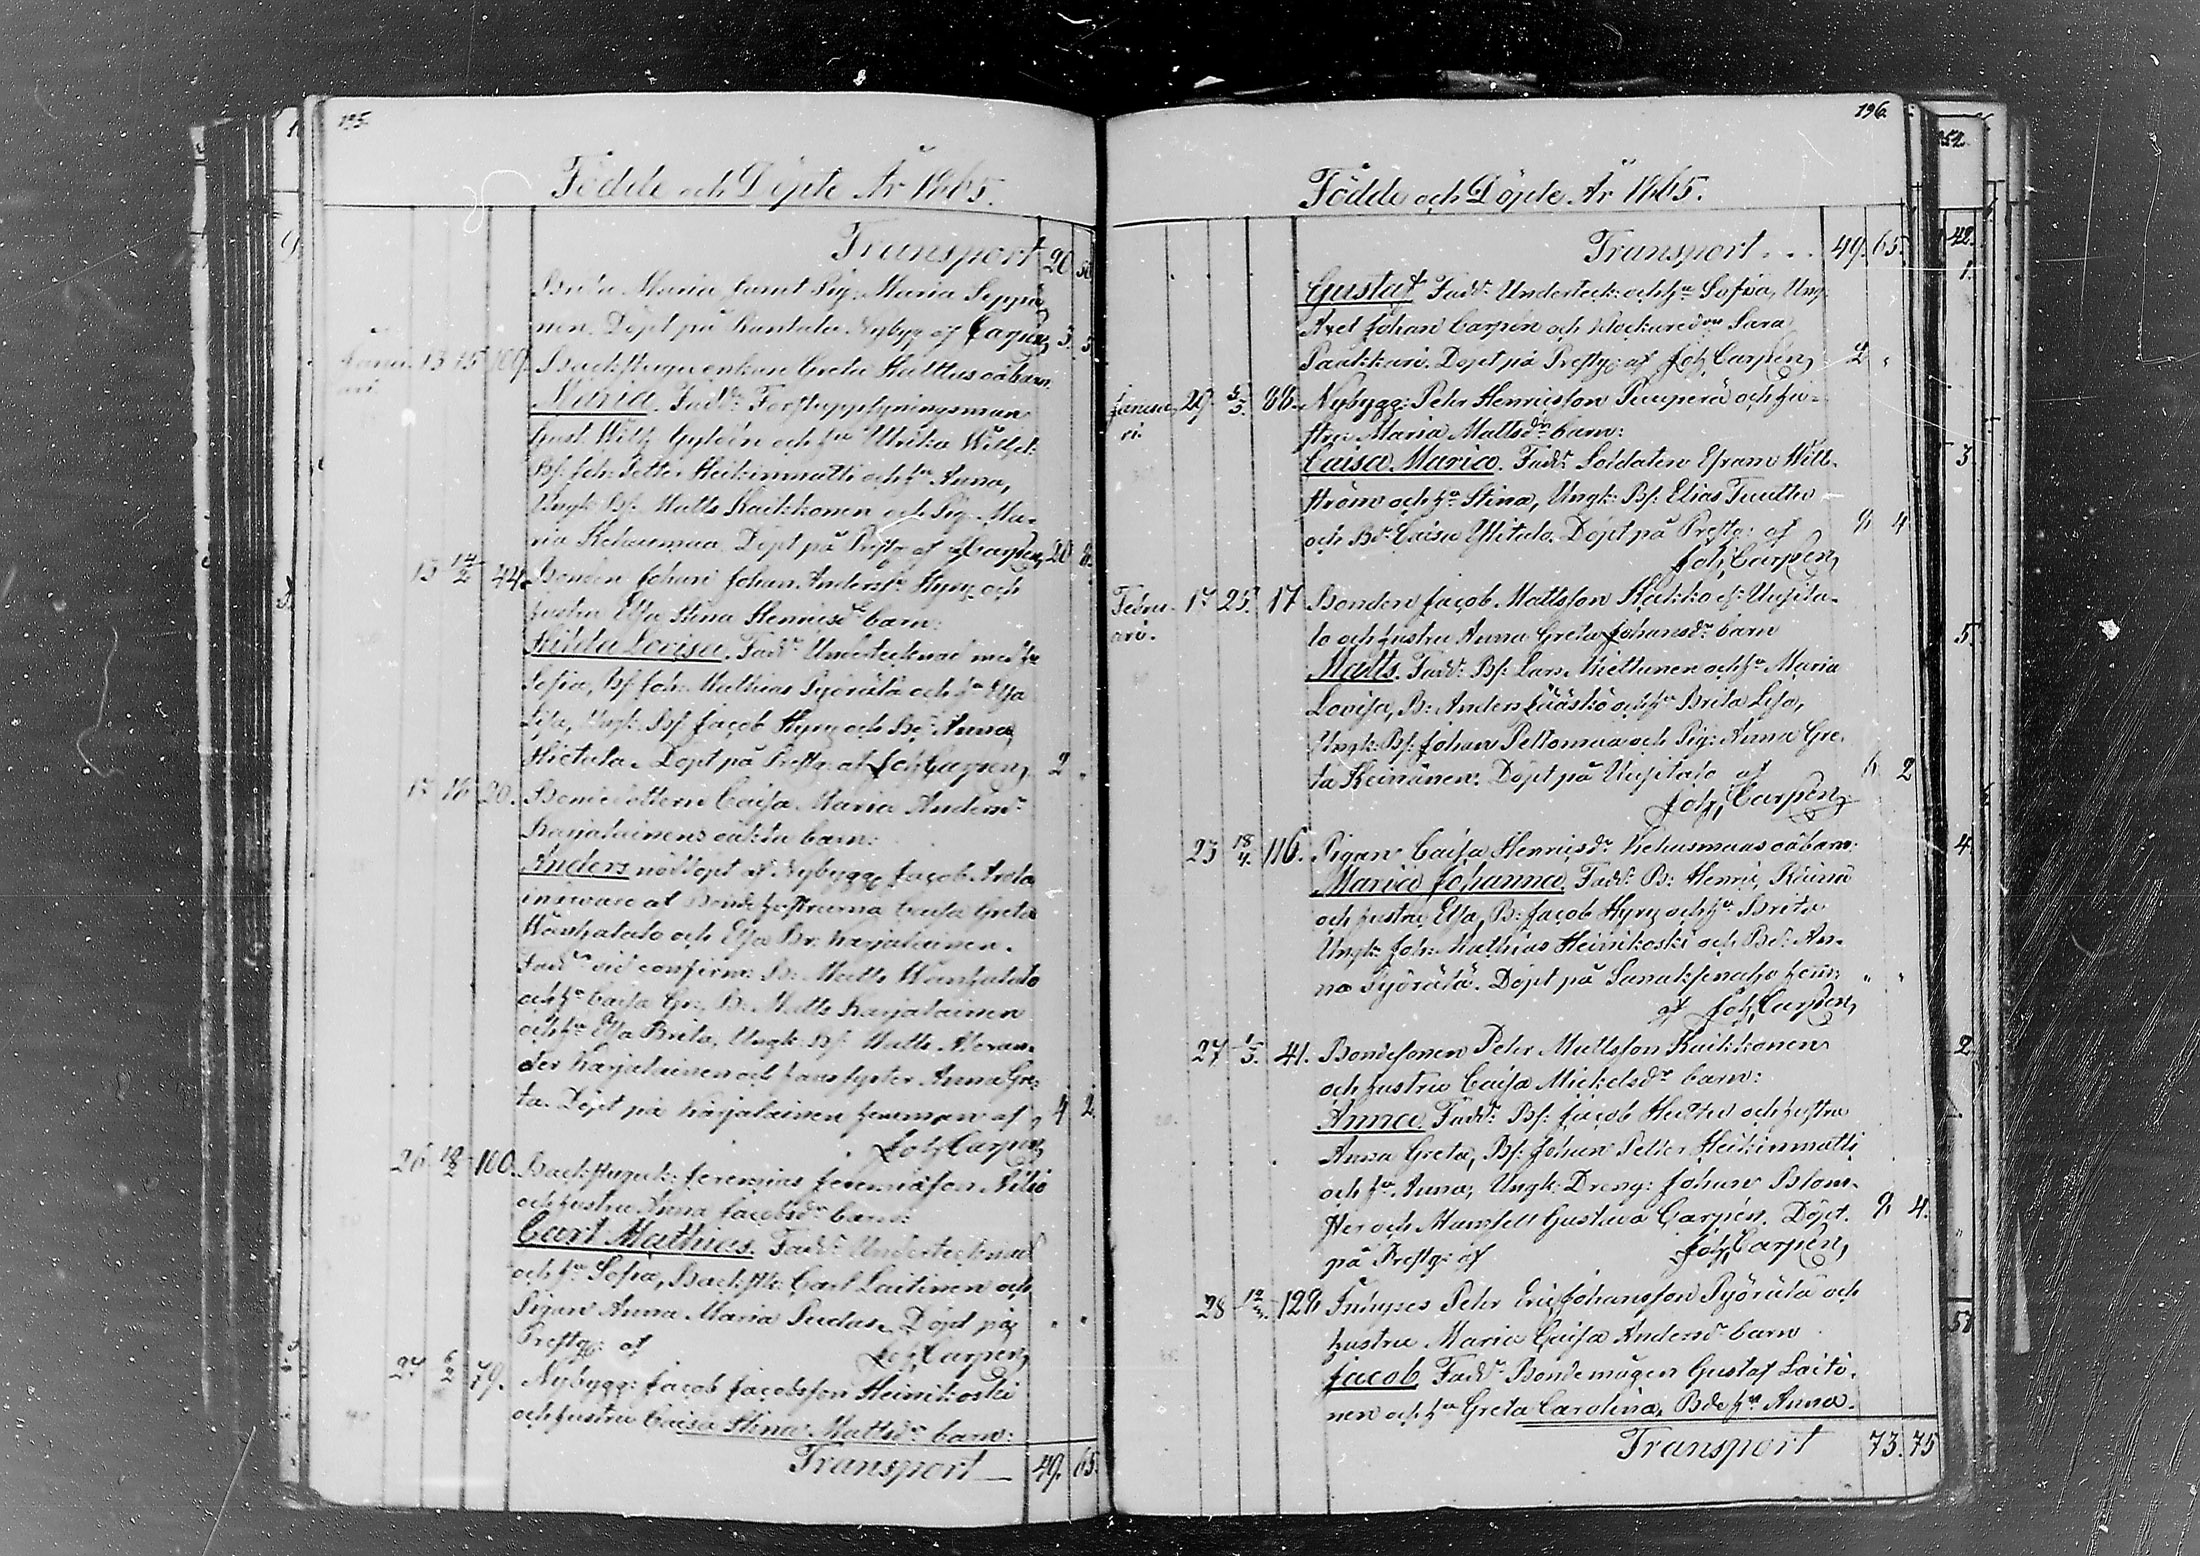 195.
Födde och Döpte År 1865.
Transport 20
Brita Maria samt Pig: Maria Seppä-
nen. Döpt på Rantala Nybyg af Carpén, 5 5
Januari 13 15 109. Backstuguenkan Greta oä barn
Maria. Fadd:
Gust. Wilh. Gyldén och h:u Ulrika Wilhel:
Bs: Joh: Petter Heikinmatti och h:u Anna,
Ungk: Bs: Matts Kaikkonen och Pig: Ma-
ria Kehusmaa. Döpt på Prestg: af J Carpén, 20
13 12/2 44. Bonden Johan Johan Anderss: Hyry och
hustru Elsa Stina Henricsd:r barn:
Hilda Lovisa. Fadd:r Undertecknad med h:u
Sofia, Bs: Joh: Mathias Pyörälä och h:u Elsa
Lisa, Ungk: Bs: Jacob Hyry och Bd:r Anna
Hietala. Döpt på Prestg: af Joh, Carpén, 2 "
17 18 20. Bondedottern Caisa Maria Andersd:r
Karjalainens oäkta barn:
Anders nöddöpt af Nybygg: Jacob Arola
i närvaro af Bondehustrurna Caisa Greta
Wanhatalo och Elsa Br: Karjalainen.
Fadd:r vid confirm: B: Matts Wanhatalo
och h:u Caisa Gr:, B: Matts Karjalainen
och h:u Elsa Brita, Ungk: Bs: Matts Alexan-
der Karjalainen och hans syster Anna Gre-
ta. Döpt på Karjalainen hemman af 4 2
Joh, Carpén,
26 18/2 100. Backstuguk: Jeremias Jeremiasson
och hustru Anna Jacobsd:r barn:
Carl Mathias. Fadd:r Undertecknad
och h:u Sofia, Backstk: Carl Laitinen och
Pigan Anna Maria Sudas. Döpt på " "
Prestg: af Joh, Carpén,
27 6/2 79. Nybygg: Jacob Jacobsson Heinikoski
och hustru Caisa Stina Mattsd:r barn:
Transport 49. 65.
196.
Födde och Döpte År 1865.
Transport . . . 49. 65.
Gustaf. Fadd:r Underteck: och h:u Sofia, Ung:
Axel Johan Carpén och klockared:n Sara
Paakkari. Döpt på Prestg: af Joh, Carpén, 2 "
Januari 29 5/3 88. Nybygg: Petr Henricsson Puuperä och hu-
stru Maria Mattsd:r barn:
Caisa Maria. Fadd:r Soldaten Efram Will-
ström och h:u Stina, Ungk: Bs: Elias Tuutti
och Bd:r Caisa Ylitalo. Döpt på Prestg: af 9 4
Joh, Carpén,
Februari 17 25. 17 Bonden Jacob Mattsson Kakko l: Uusita-
lo och hustru Anna Greta Johansd:r barn
Matts. Fadd:r Bs: Lars Miettunen och h:u Maria
Lovisa, B: Anders Jääskö och h:u Brita Lisa,
Ungk: Bs: Johan Peltomaa och Pig: Anna Gre-
ta Keinänen. Döpt på Uusitalo af 6 2
Joh, Carpén,
23 18/4. 116. Pigan Caisa Henricsd:r Kehusmaas oä barn:
Maria Johanna. Fadd:r B: Henric
och hustru Elsa, B: Jacob Hyry och h:u Brita
Ungk: Joh: Mathias Heinikoski och Bd: An-
na Pyörälä. Döpt på hem: " "
af Joh, Carpén,
27 1/3. 41. Bondesonen Petr Mattsson Kaikkonen
och hustru Caisa Mickelsd:r barn:
Anna. Fadd:r Bs: Jacob och hustru
Anna Greta, Bs: Johan Petter Heikinmatti
och h:u Anna, Ungk: Dreng: Johan Blom-
ster och Mamsell Gustava Carpén. Döpt 9 4.
på Prestg: af Joh, Carpén,
28 12/3. 128 Inhyses Petr Eric Johansson Pyörälä och
hustru Maria Caisa Andersd:r barn
Jacob. Fadd:r Bondemågen Gustaf Laiti-
nen och h:u Greta Carolina, Bdeh:u Anna
Transport 73. 75